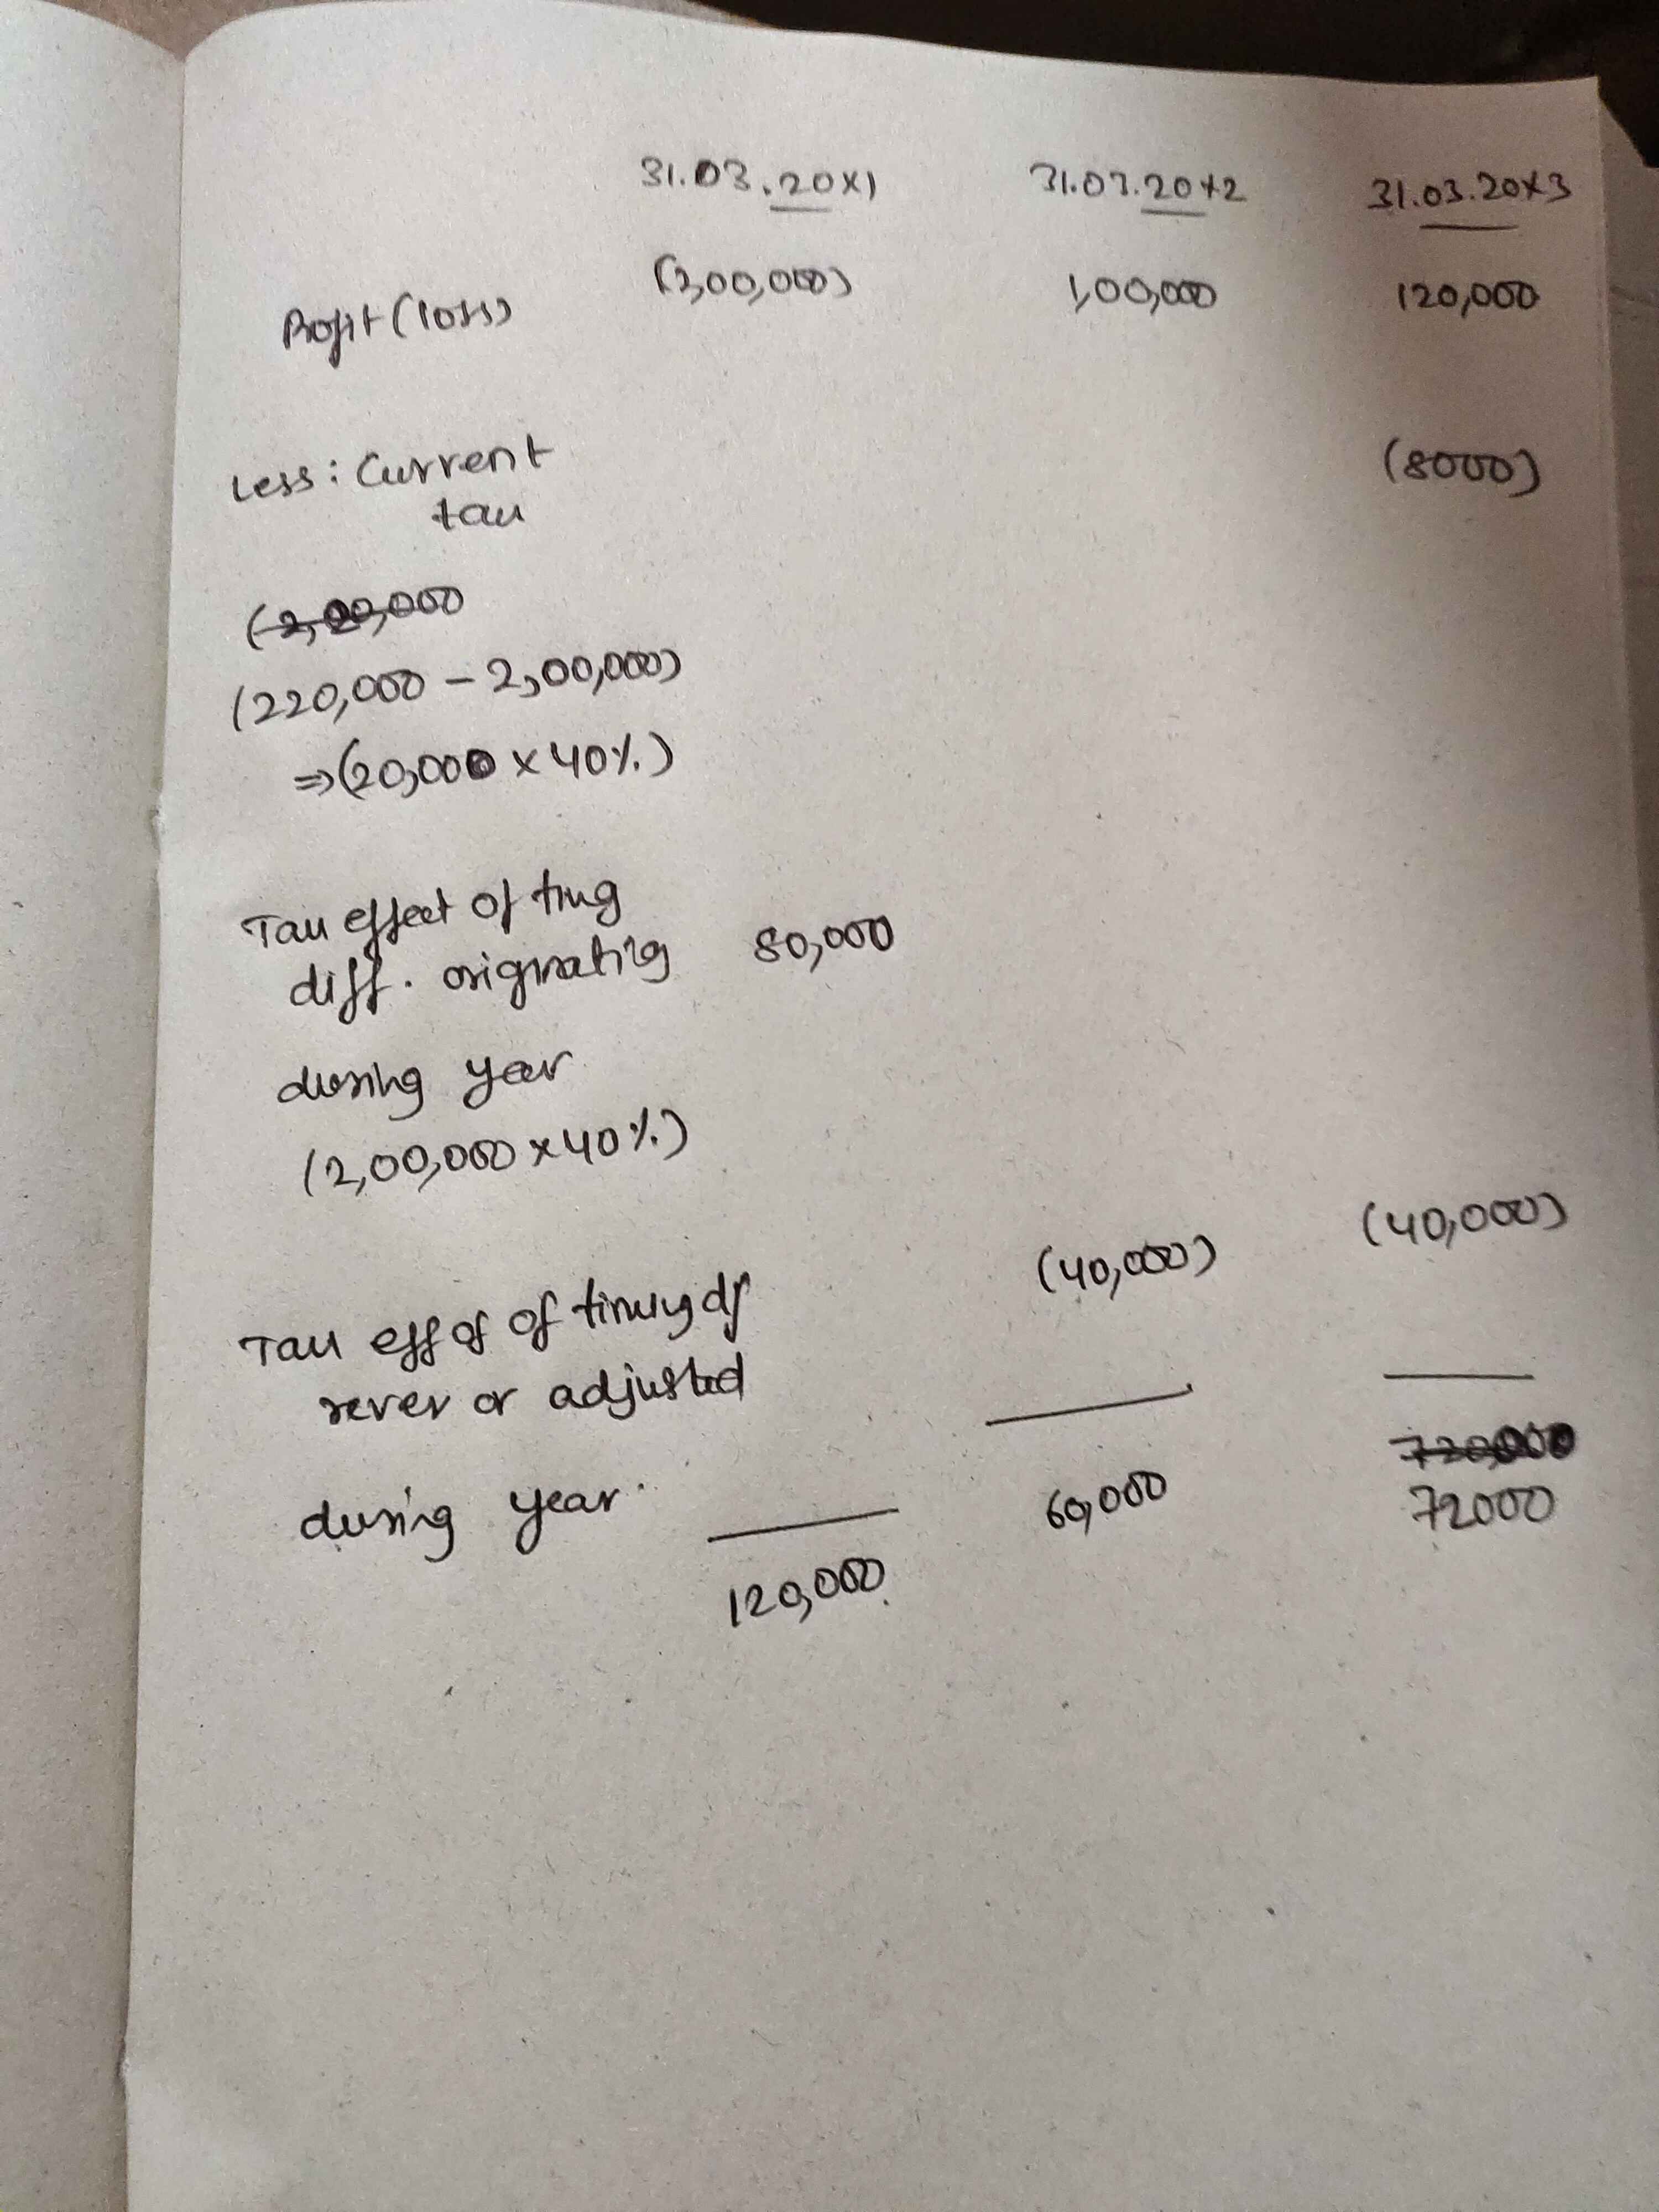 31.03.20X1 31.03.20X2 31.03.20X3
Profit (loss) (2,00,000) 1,00,000 120,000
Less: Current (8000)
tax
(2,20,000
(220,000 - 2,00,000)
⇒(20,000 x 40%.)
Tax effect of timg
diff. originating 80,000
during year
(2,00,000 x 40%.)
(40,000) (40,000)
Tax eff of of timing df
rever or adjusted
720,000
during year. 60,000 72000
120,000.